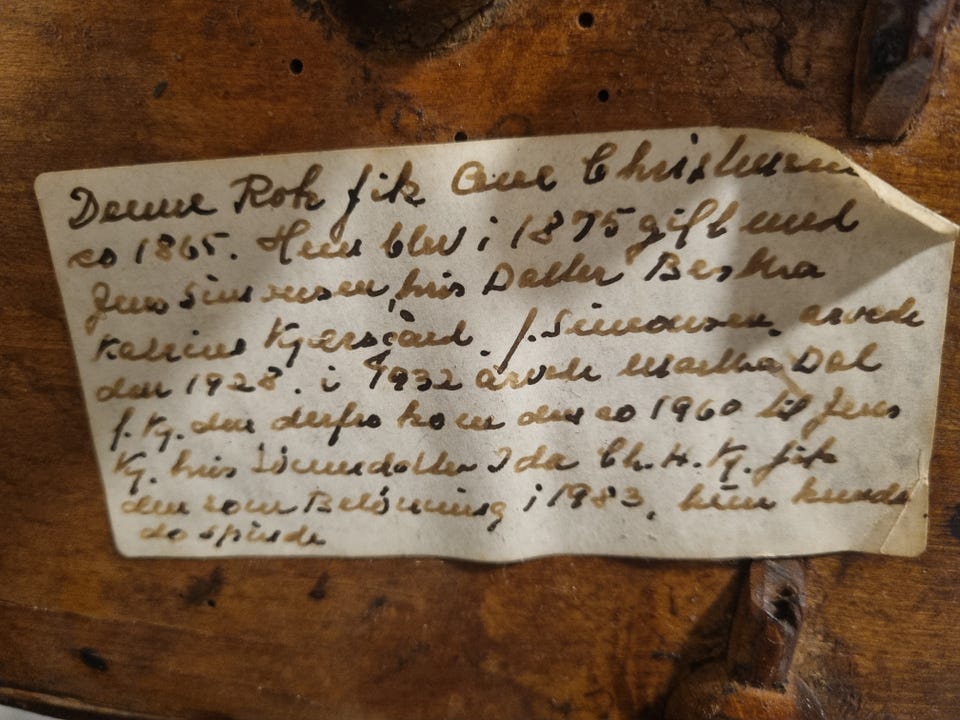 Denne Rok fik Ane Christensen
co 1865. Hun blev i 1875 gift med
Jens Simonsen, hvis Datter Beskra
Katrine Kjærsgård J. Simonsen, arvede
den 1928. i 1932 arvede Martha Dal
f. Kj. den derfra kom den co 1960 til Jens
Kj. hvis Sönnedatter Ida Ch. H. Kj. fik
den som Belönning i 1983, hun kunde
da spinde